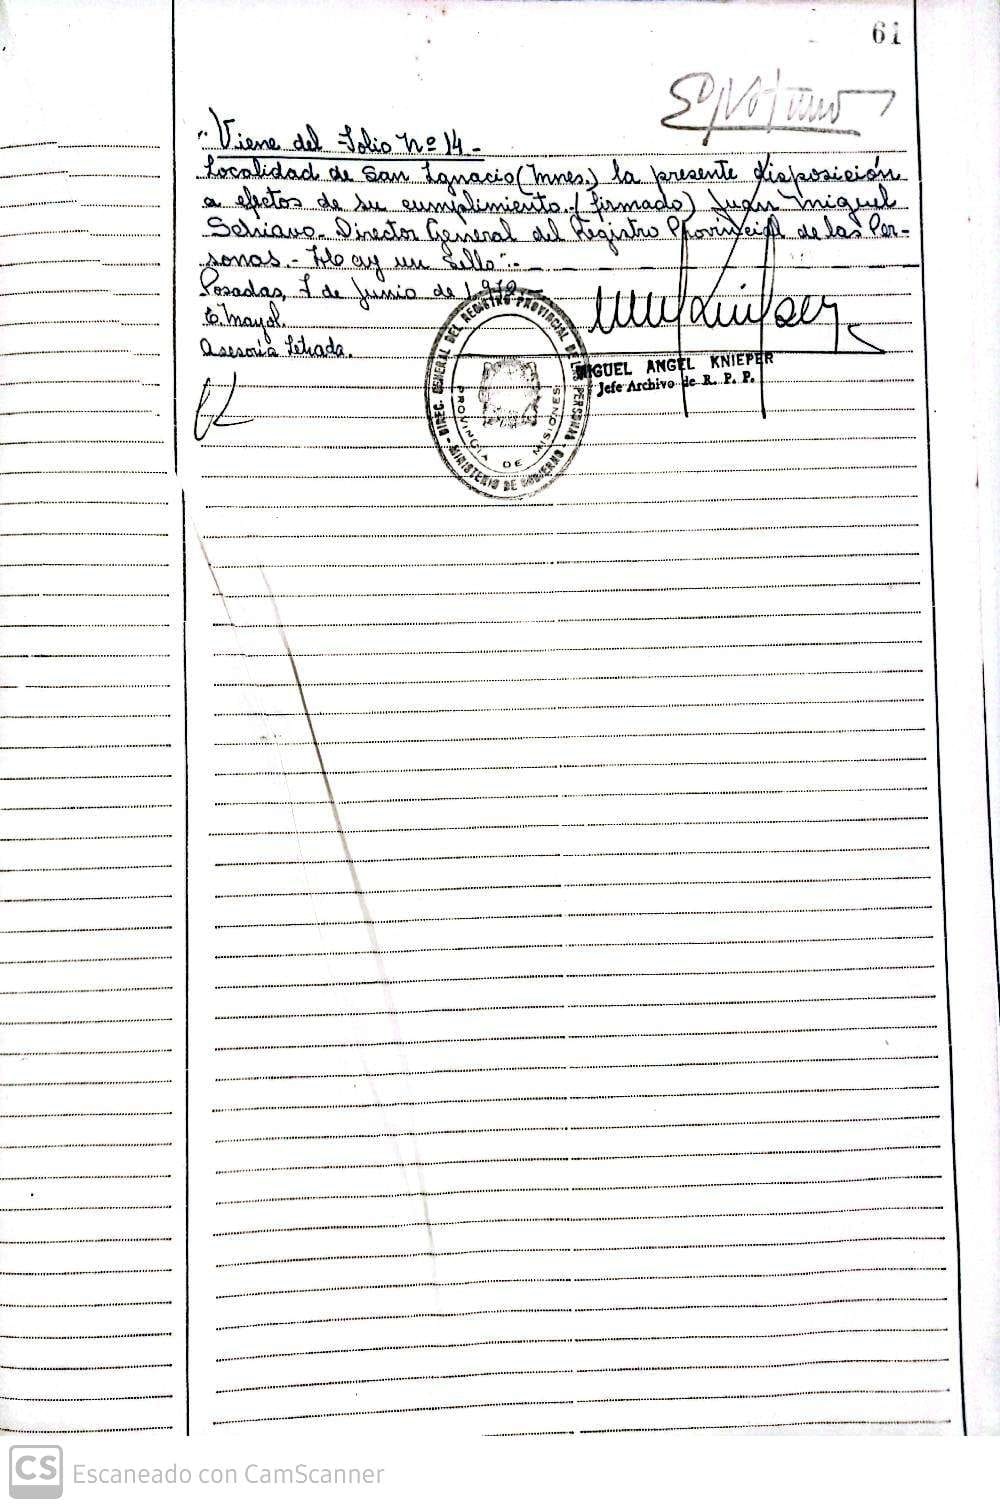 61
"Viene del Folio Nº 14 -
Localidad de San Ignacio (Mnes.) la presente disposición
a efectos de su cumplimiento. (firmado) Juan Miguel
Schiavo - Director General del Registro Provincial de las Per-
sonas. - Hay un Sello". -
Posadas, 7 de Junio de 1.972 -
E. Mayol.
Asesoría Letrada.
MIGUEL ANGEL KNIEPER
Jefe Archivo de R. P. P.
DIREC. GENERAL DEL REGISTRO PROVINCIAL DE LAS PERSONAS
PROVINCIA DE MISIONES
MINISTERIO DE GOBIERNO
CS Escaneado con CamScanner